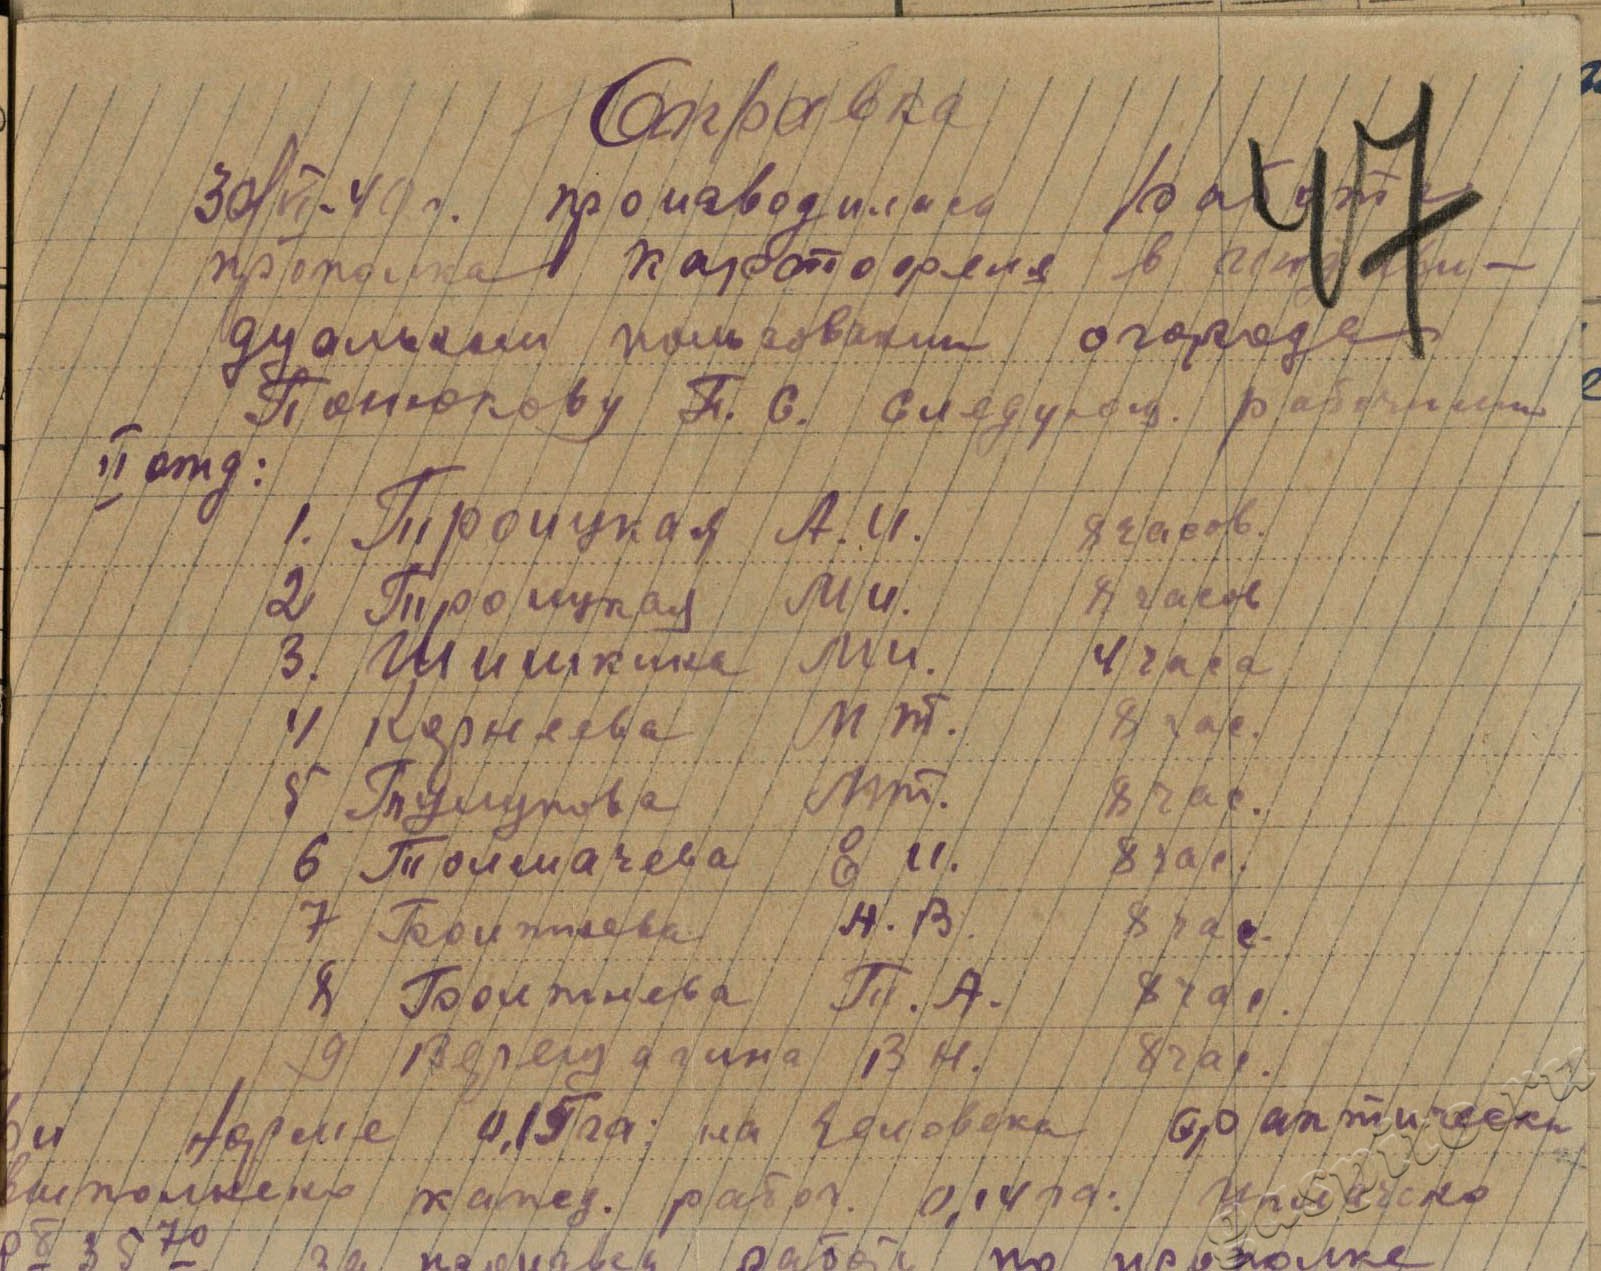 Справка
47
30/VI-40 г. производилась работа
прополка картофеля в индиви-
дуальном пользовании огорода
Понюкову П. С. следующ. рабочими
II отд:
1. Троицкая А. И. 8 часов.
2 Троицкая М И. 8 часов
3. Шишкина М И. 4 часа
4 Корнеева М Т. 8 час.
5 М Т. 8 час.
6 Толмачева Е И. 8 час.
7 Н. В. 8 час.
8 П. А. 8 час.
9 Верещагина В Н. 8 час.
при норме 0,15 га: на человека фактически
выполнено кажд. рабоч. 0,14 га: Уплачено
35 70 за работу по прополке